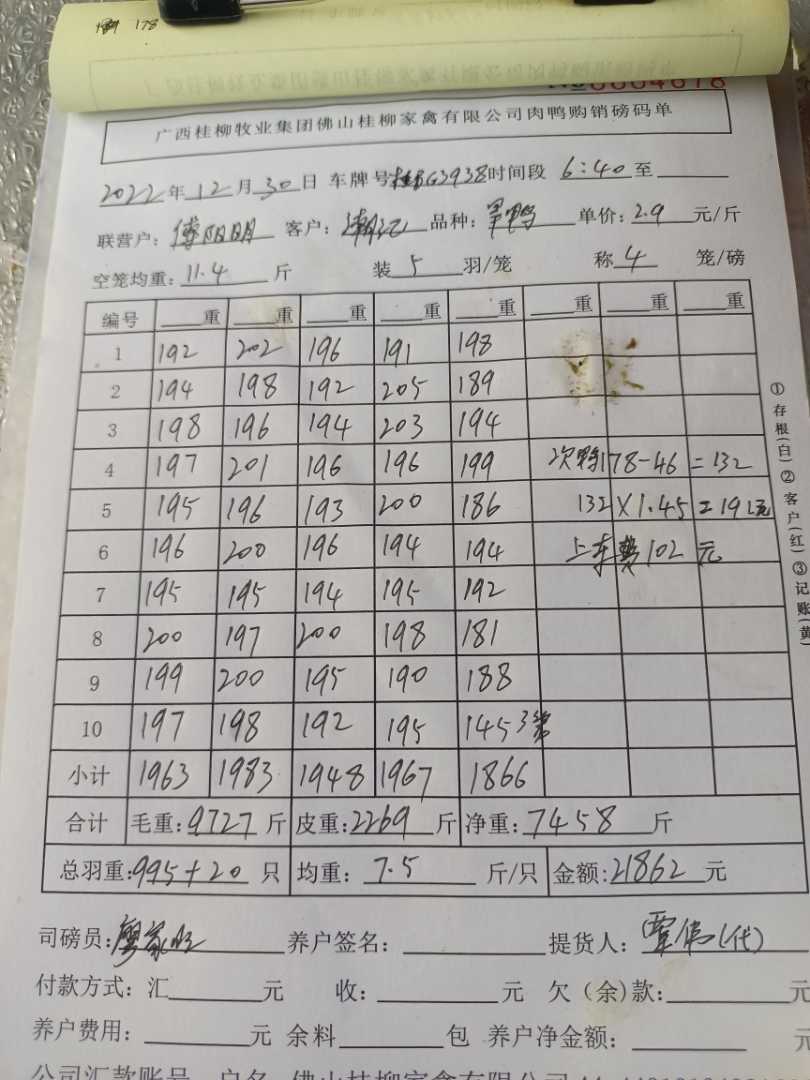 178
广西桂柳牧业集团佛山桂柳家禽有限公司肉鸭购销磅码单
2022年12月30日 车牌号 G3938 时间段 6:40 至
联营户: 傅阳明 客户: 潮汇 品种: 单价: 2.9 元/斤
空笼均重: 11.4 斤 装 5 羽/笼 称 4 笼/磅
编号 重 重 重 重 重 重 重 重
1 192 202 196 191 198
2 194 198 192 205 189
3 198 196 194 203 194
4 197 201 196 196 199 次鸭178-46=132
5 195 196 193 200 186 132×1.45=191元
6 196 200 196 194 194 上车费102元
7 195 195 194 195 192
8 200 197 200 198 181
9 199 200 195 190 188
10 197 198 192 195 145 3笼
小计 1963 1983 1948 1967 1866
合计 毛重: 9727 斤 皮重: 2269 斤 净重: 7458 斤
总羽重: 995+20 只 均重: 7.5 斤/只 金额: 21862 元
司磅员: 廖家 养户签名: 提货人: 覃伟(代)
付款方式: 汇 元 收: 元 欠(余)款: 元
养户费用: 元 余料 包 养户净金额: 元
公司汇款账号 户名 佛山桂柳家禽有限公司
①存根(白)②客户(红)③记账(黄)